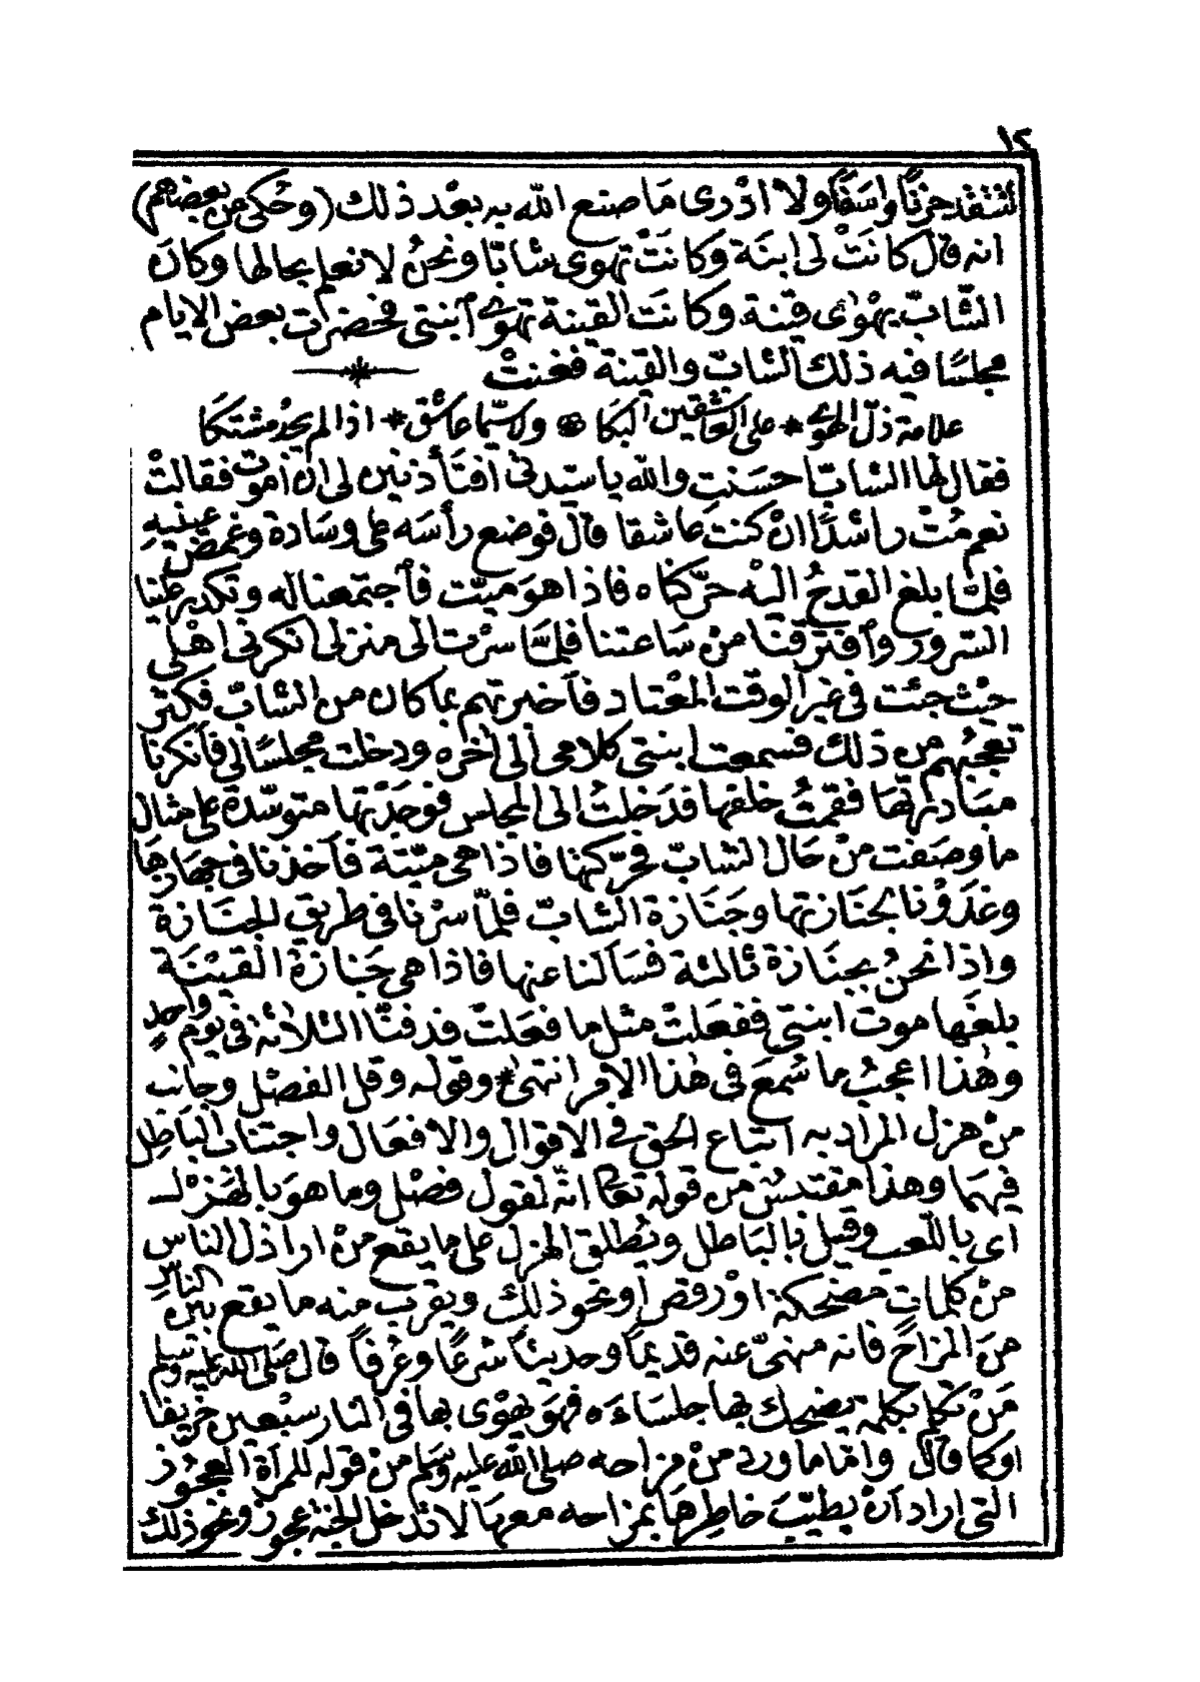 ١٢
تتقد حزنًا واسَفًا ولا ادْرى مَا صنع الله به بعْد ذلك (وحُكى عن بعضهم)
انه قال كانَتْ لى ابنَة وكانَتْ تهوى شابّا ونحنُ لا نعلم بحالها وكان
الشّابّ يهْوٰى قينة وكانَت القينة تهوى ابنتى فحضرت بعض الايام
مجلسًا فيه ذلك الشابّ والقينة فغنتْ
علامة ذلّ الهوى * على العاشقين البكا ولا سيّما عاشق * اذا لم يجدْ مشتكا
فقال لها الشابّ احسَنت والله يا سيّدتى افتَأذنين لى ان اموت فقالتْ
نعم مُتْ راشدًا انْ كنت عاشقا قال فوضع رأسَه على وسَادة وغمض عينيهِ
فلمّا بلغ القدحُ اليْه حرّكناه فاذا هوَ ميّت فاجتمعنا له وتكدّر علينا
السّرور وافترقنا منْ سَاعتنا فلمّا سرْت الى منزلى انكرنى اهْلى
حيْث جئت فى غير الوقت المعْتاد فاخبرتهم بما كان من الشابّ فكثر
تعجبُهم من ذلك فسمعت ابنتى كلامى الى اخره ودخلت مجلسًا لى فأنكرنا
مبَادرتهَا فقمتُ خلفها فدَخلتُ الى المجلس فوجَدْتها متوسّدة على مثال
ما وصَفت منْ حَال الشابّ فحرّكتها فاذا هى ميّتة فاخذنا فى جهَازهَا
وغدَوْنا بجنَازتها وجَنَازة الشابّ فلمّا سرْنا فى طريق الجنَازة
واذا نحنُ بجنَازة ثالثة فسَألنا عنها فاذا هى جَنازة القيْنَة
بلغَها موت ابنتى ففعَلتْ مثل ما فعَلتْ فدفنّا الثلاثة فى يوْم واحدٍ
وهٰذا اعجبُ ما سُمعَ فى هٰذا الامر انتهىٰ * وقوله وقل الفصْل وجانب
منْ هزل المراد به اتباع الحق فى الاقوال والافعَال واجتناب البَاطل
فيهمَا وهذا مقتبسٌ من قوله تعالى انّه لقول فصْل وما هوَ بالهزْل
اى باللّعب وقيل بالبَاطل ويُطلق الهزل على ما يقع منْ اراذل الناس
منْ كلماتٍ مضحكة اوْ رقص او نحو ذلك ويقرب منه ما يقع بين الناس
منَ المزاح فانه منهىّ عنه قديمًا وحديثًا شرعًا وعُرفًا قال صلى الله عليه وسلم
مَنْ تكلم بكلمة يضحك بها جلسَاءَه فهوَ يهْوى بها فى النار سبْعين خريفا
او كما قال وامّا ما ورد منْ مزاحه صلى الله عليه وسَلم منْ قوله للمرأة العجُوز
التى اراد انْ يطيّبَ خاطرهَا بمزاحه معهَا لا تدْخل الجنة عجوز ونحو ذلك